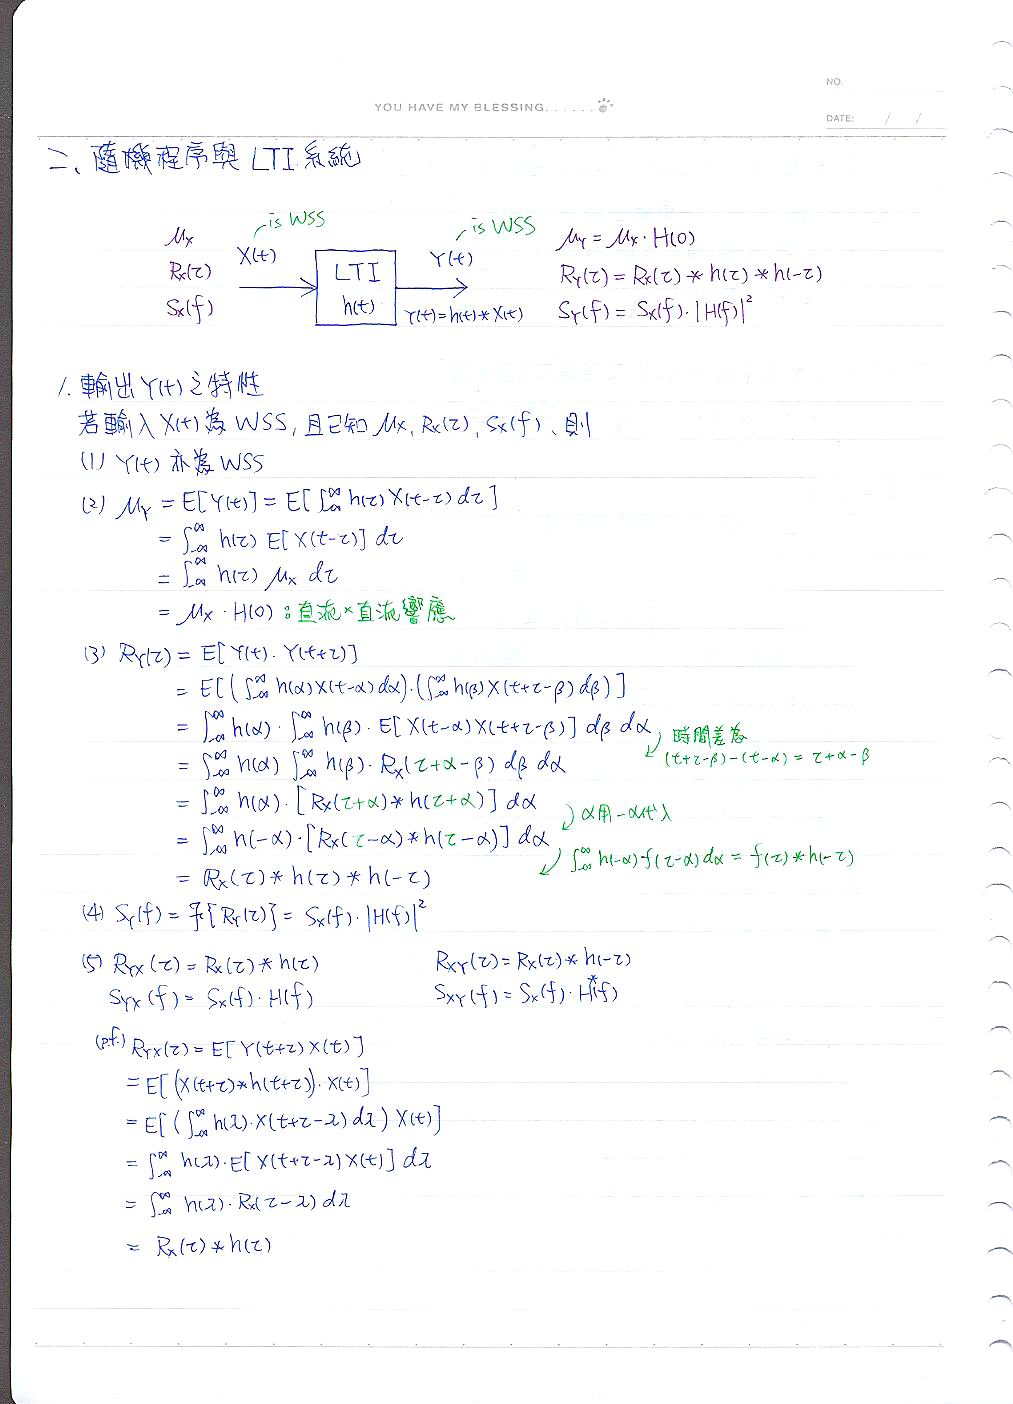 NO.
YOU HAVE MY BLESSING......
DATE: / /
二、隨機程序與 LTI 系統
is WSS
is WSS
μx
X(t)
LTI
h(t)
Y(t)
μY = μx · H(0)
Rx(τ)
RY(τ) = Rx(τ) * h(τ) * h(-τ)
Sx(f)
Y(t)=h(t)*X(t)
SY(f) = Sx(f) · |H(f)|²
1. 輸出 Y(t) 之特性
若輸入 X(t) 為 WSS, 且已知 μx, Rx(τ), Sx(f)、則
(1) Y(t) 亦為 WSS
(2) μY = E[Y(t)] = E[∫_-∞^∞ h(τ) X(t-τ) dτ]
= ∫_-∞^∞ h(τ) E[X(t-τ)] dτ
= ∫_-∞^∞ h(τ) μx dτ
= μx · H(0) : 直流×直流響應
(3) RY(τ) = E[Y(t)·Y(t+τ)]
= E[(∫_-∞^∞ h(α)X(t-α)dα)·(∫_-∞^∞ h(β)X(t+τ-β)dβ)]
= ∫_-∞^∞ h(α)·∫_-∞^∞ h(β)·E[X(t-α)X(t+τ-β)] dβ dα
時間差為
(t+τ-β)-(t-α) = τ+α-β
= ∫_-∞^∞ h(α) ∫_-∞^∞ h(β)·Rx(τ+α-β) dβ dα
= ∫_-∞^∞ h(α)·[Rx(τ+α)*h(τ+α)] dα
α用-α代入
= ∫_-∞^∞ h(-α)·[Rx(τ-α)*h(τ-α)] dα
∫_-∞^∞ h(-α)·f(τ-α)dα = f(τ)*h(-τ)
= Rx(τ)*h(τ)*h(-τ)
(4) SY(f) = F{RY(τ)} = Sx(f)·|H(f)|²
(5) RYX(τ) = Rx(τ)*h(τ) RXY(τ) = Rx(τ)*h(-τ)
SYX(f) = Sx(f)·H(f) SXY(f) = Sx(f)·H*(f)
(pf.) RYX(τ) = E[Y(t+τ)X(t)]
= E[(X(t+τ)*h(t+τ))·X(t)]
= E[(∫_-∞^∞ h(λ)·X(t+τ-λ)dλ) X(t)]
= ∫_-∞^∞ h(λ)·E[X(t+τ-λ)X(t)] dλ
= ∫_-∞^∞ h(λ)·Rx(τ-λ)dλ
= Rx(τ)*h(τ)